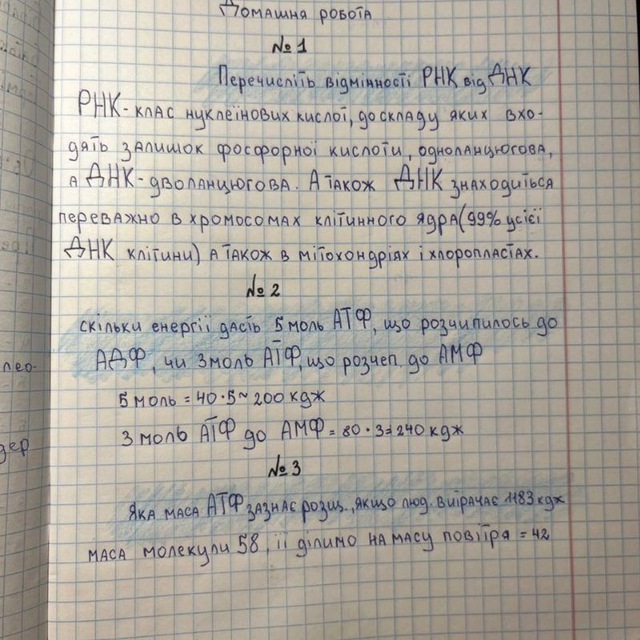 Домашня робота
№1
Перечисліть відмінності РНК від ДНК
РНК - клас нуклеїнових кислот, до складу яких вхо-
дять залишок фосфорної кислоти, одноланцюгова,
а ДНК - дволанцюгова. А також ДНК знаходиться
переважно в хромосомах клітинного ядра (99% усієї
ДНК клітини) а також в мітохондріях і хлоропластах.
№2
скільки енергії дасть 5 моль АТФ, що розчипилось до
лео-
АДФ, чи 3 моль АТФ, що розчеп. до АМФ
5 моль = 40·5 ~ 200 кдж
3 моль АТФ до АМФ = 80·3 = 240 кдж
дер
№3
Яка маса АТФ зазнає розщ., якщо люд. витрачає 1183 кдж
маса молекули 58, її ділимо на масу повітря = 42